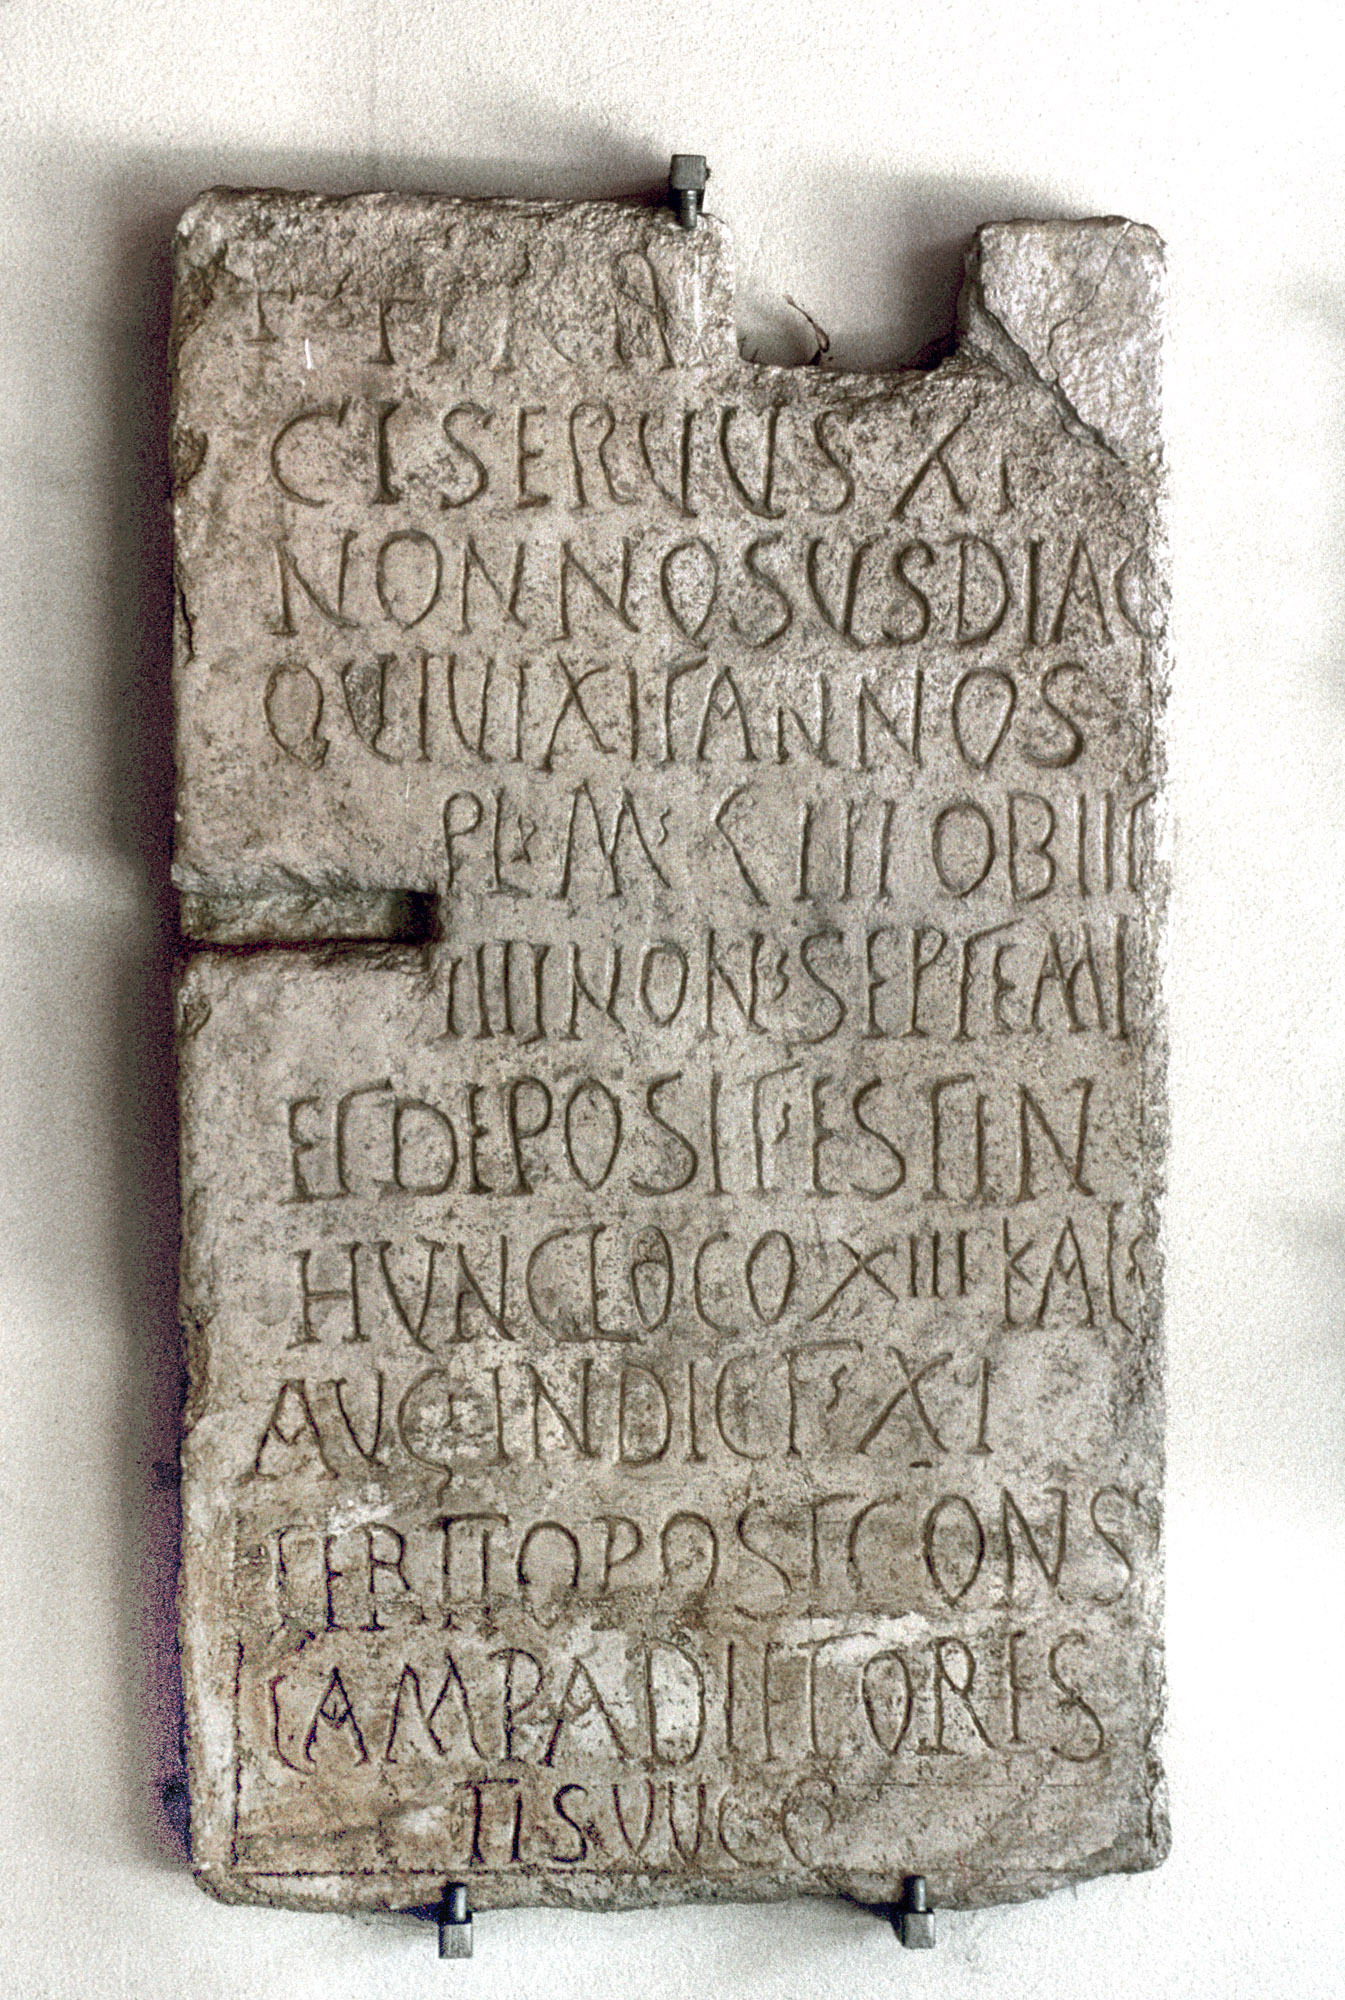 CI SERVUS XI
NONNOSUS DIAC
QUI VIXIT ANNOS
PL M CIII OBIIT
IIII NON SEPTEMB
ET DEPOSIT EST IN
HUNC LOCO XIII KAL
AUG INDICT XI
TERTIO POST CONS
LAMPADI ET ORES
TIS VV CC